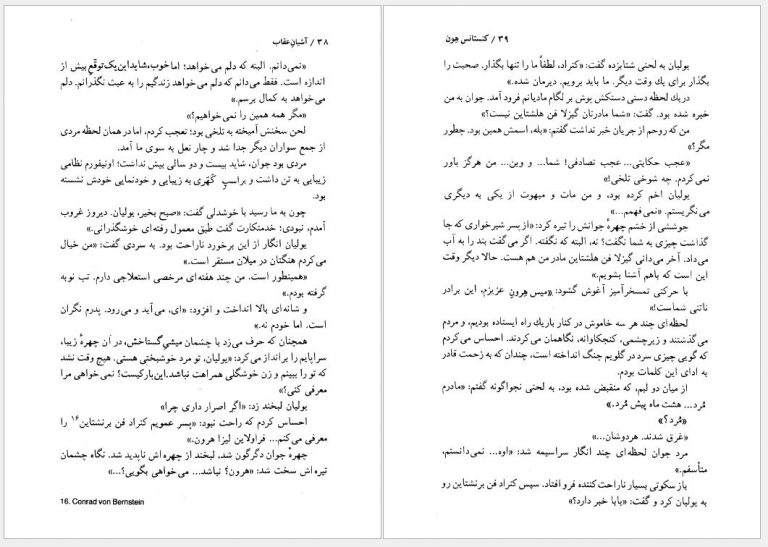 ۳۸ / آشیان عقاب
«نمی‌دانم. البته که دلم می‌خواهد؛ اما خوب، شاید این یک توقّع بیش از
اندازه است. فقط می‌دانم که دلم می‌خواهد زندگیم را به عبث نگذرانم. دلم
می‌خواهد به کمال برسم.»
«مگر همه همین را نمی‌خواهیم؟»
لحن سخنش آمیخته به تلخی بود؛ تعجب کردم، اما در همان لحظه مردی
از جمع سواران دیگر جدا شد و چار نعل به سوی ما آمد.
مردی بود جوان، شاید بیست و دو سالی بیش نداشت؛ اونیفورم نظامی
زیبایی به تن داشت و براسبِ کَهَری به زیبایی و خودنمایی خودش نشسته
بود.
چون به ما رسید با خوشدلی گفت: «صبح بخیر، یولیان. دیروز غروب
آمدم، نبودی؛ خدمتکارت گفت طبق معمول رفته‌ای خوشگذرانی.»
یولیان انگار از این برخورد ناراحت بود. به سردی گفت: «من خیال
می‌کردم هنگتان در میلان مستقر است.»
«همینطور است. من چند هفته‌ای مرخصی استعلاجی دارم. تب نوبه
گرفته بودم.»
و شانه‌ای بالا انداخت و افزود: «ای، می‌آید و می‌رود. پدرم نگران
است. اما خودم نه.»
همچنان که حرف می‌زد با چشمان میشیِ گستاخش، در آن چهرهٔ زیبا،
سراپایم را برانداز می‌کرد: «یولیان، تو مرد خوشبختی هستی. هیچ وقت نشد
که تو را ببینم و زن خوشگلی همراهت نباشد. این بار کیست؟ نمی‌خواهی مرا
معرفی کنی؟»
یولیان لبخند زد: «اگر اصرار داری چرا»
احساس کردم که راحت نبود: «پسر عمویم کنراد فن برنشتاین۱۶ را
معرفی می‌کنم... فراولاین لیزا هرون.»
چهرهٔ جوان دگرگون شد، لبخند از چهره‌اش ناپدید شد. نگاه چشمان
تیره‌اش سخت شد: «هرون؟ نباشد... می‌خواهی بگویی؟...»
16. Conrad von Bernstein
۳۹ / کنستانس هون
یولیان به لحنی شتابزده گفت: «کنراد، لطفاً ما را تنها بگذار. صحبت را
بگذار برای یك وقت دیگر. ما باید برویم. دیرمان شده.»
دریك لحظه دستی دستکش پوش بر لگام مادیانم فرود آمد. جوان به من
خیره شده بود. گفت: «شما مادرتان گیزلا فن هلشتاین نیست؟»
من که روحم از جریان خبر نداشت گفتم: «بله، اسمش همین بود. چطور
مگر؟»
«عجب حکایتی... عجب تصادفی! شما... و وین... من هرگز باور
نمی‌کردم. چه شوخی تلخی!»
یولیان اخم کرده بود، و من مات و مبهوت از یکی به دیگری
می‌نگریستم. «نمی‌فهمم...»
جوششی از خشم چهرهٔ جوانش را تیره کرد: «از پسر شیرخواری که جا
گذاشت چیزی به شما نگفت؟ نه، البته که نگفته. اگر می‌گفت بند را به آب
می‌داد. آخر می‌دانی گیزلا فن هلشتاین مادر من هم هست. حالا دیگر وقت
این است که باهم آشنا بشویم.»
با حرکتی تمسخرآمیز آغوش گشود: «میس هِرونِ عزیزم، این برادر
ناتنی شماست!»
لحظه‌ای چند هر سه خاموش در کنار باریك راه ایستاده بودیم، و مردم
می‌گذشتند و زیرچشمی، کنجکاوانه، نگاهمان می‌کردند. احساس می‌کردم
که گویی چیزی سرد در گلویم چنگ انداخته است، چندان که به زحمت قادر
به ادای این کلمات بودم.
از میان دو لبم، که منقبض شده بود، به لحنی نجواگونه گفتم: «مادرم
مُرد... هشت ماه پیش مُرد.»
«مُرد؟»
«غرق شدند. هردوشان...»
مرد جوان لحظه‌ای چند انگار سراسیمه شد: «اوه... نمی‌دانستم،
متأسفم.»
باز سکوتی بسیار ناراحت کننده فرو افتاد. سپس کنراد فن برنشتاین رو
به یولیان کرد و گفت: «بابا خبر دارد؟»